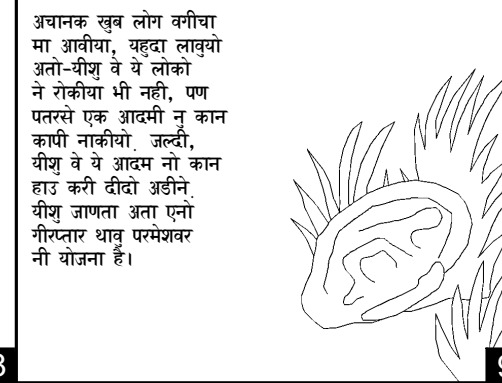 अचानक खुब लोग वगीचा
मा आवीया, यहुदा लावुयो
अतो-यीशु वे ये लोको
ने रोकीया भी नही, पण
पतरसे एक आदमी नु कान
कापी नाकीयो. जल्दी,
यीशु वे ये आदम नो कान
हाउ करी दीदो अडीने.
यीशु जाणता अता एनो
गीरप्तार थावु परमेशवर
नी योजना है।